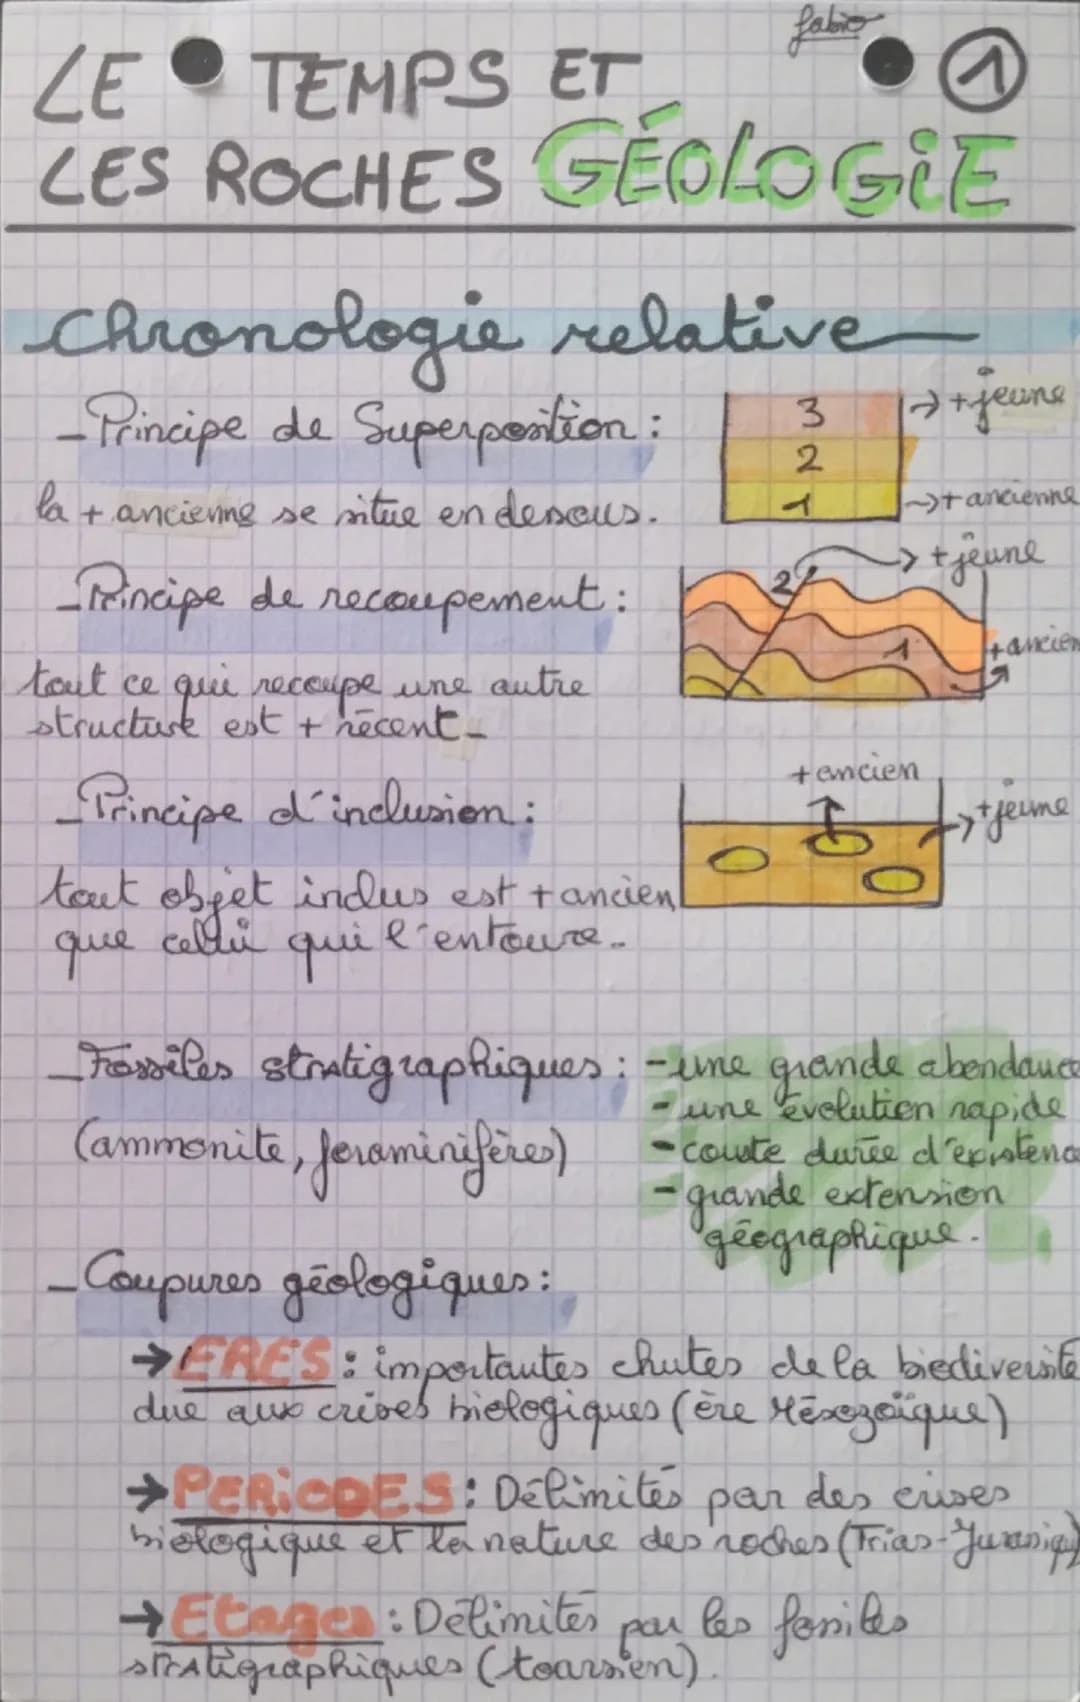 fabio
LE TEMPS ET
1
LES ROCHES GÉOLOGIE
Chronologie relative
- Principe de Superposition :
3
→ + jeune
2
1
→ + ancienne
la + ancienne se situe en dessous.
→ + jeune
- Principe de recoupement :
2
1
+ ancien
tout ce qui recoupe une autre
structure est + récent -
+ ancien
- Principe d'inclusion :
→ + jeune
tout objet inclus est + ancien
que cellui qui l'entoure.
- Fossiles stratigraphiques : - une grande abondance
- une évolution rapide
(ammonite, foraminifères)
- courte durée d'existenc
- grande extension
géographique.
- Coupures géologiques :
→ ERES : importantes chutes de la biodiversité
due aux crises biologiques (ère Mésozoïque)
→ PERiODES : Délimités par des crises
biologique et la nature des roches (Trias-Jurassiqu
→ Etages : Délimités par les fossiles
stratigraphiques (toarsien).